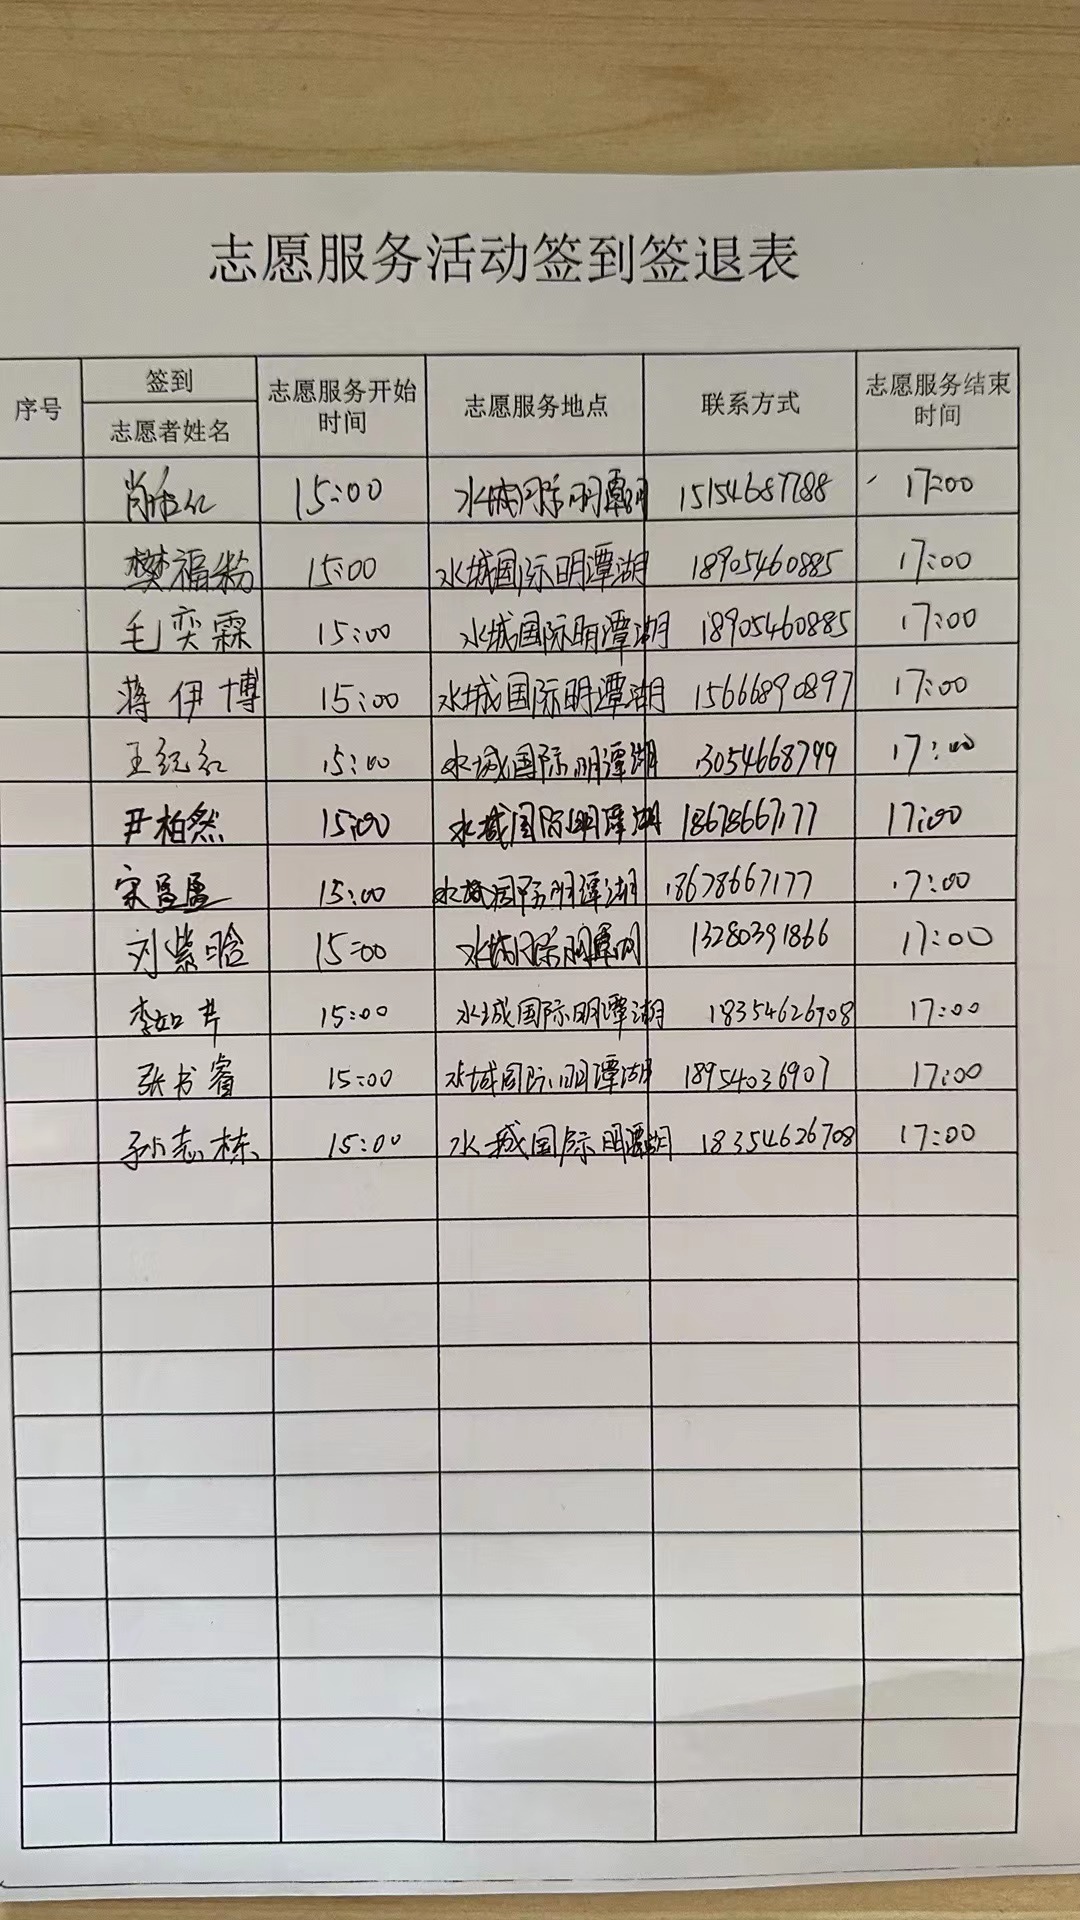 志愿服务活动签到签退表
序号 签到 志愿者姓名 志愿服务开始时间 志愿服务地点 联系方式 志愿服务结束时间
15:00 水城国际明潭湖 15154687788 17:00
樊福粉 15:00 水城国际明潭湖 18905460885 17:00
毛奕霖 15:00 水城国际明潭湖 18905460885 17:00
蒋伊博 15:00 水城国际明潭湖 15666890897 17:00
王纪红 15:00 水城国际明潭湖 13054668799 17:00
尹柏然 15:00 水城国际明潭湖 18678667177 17:00
宋 15:00 水城国际明潭湖 18678667177 17:00
刘紫晗 15:00 水城国际明潭湖 13280391866 17:00
李如 15:00 水城国际明潭湖 17:00
张书睿 15:00 水城国际明潭湖 18954036907 17:00
孙志栋 15:00 水城国际明潭湖 18354626708 17:00